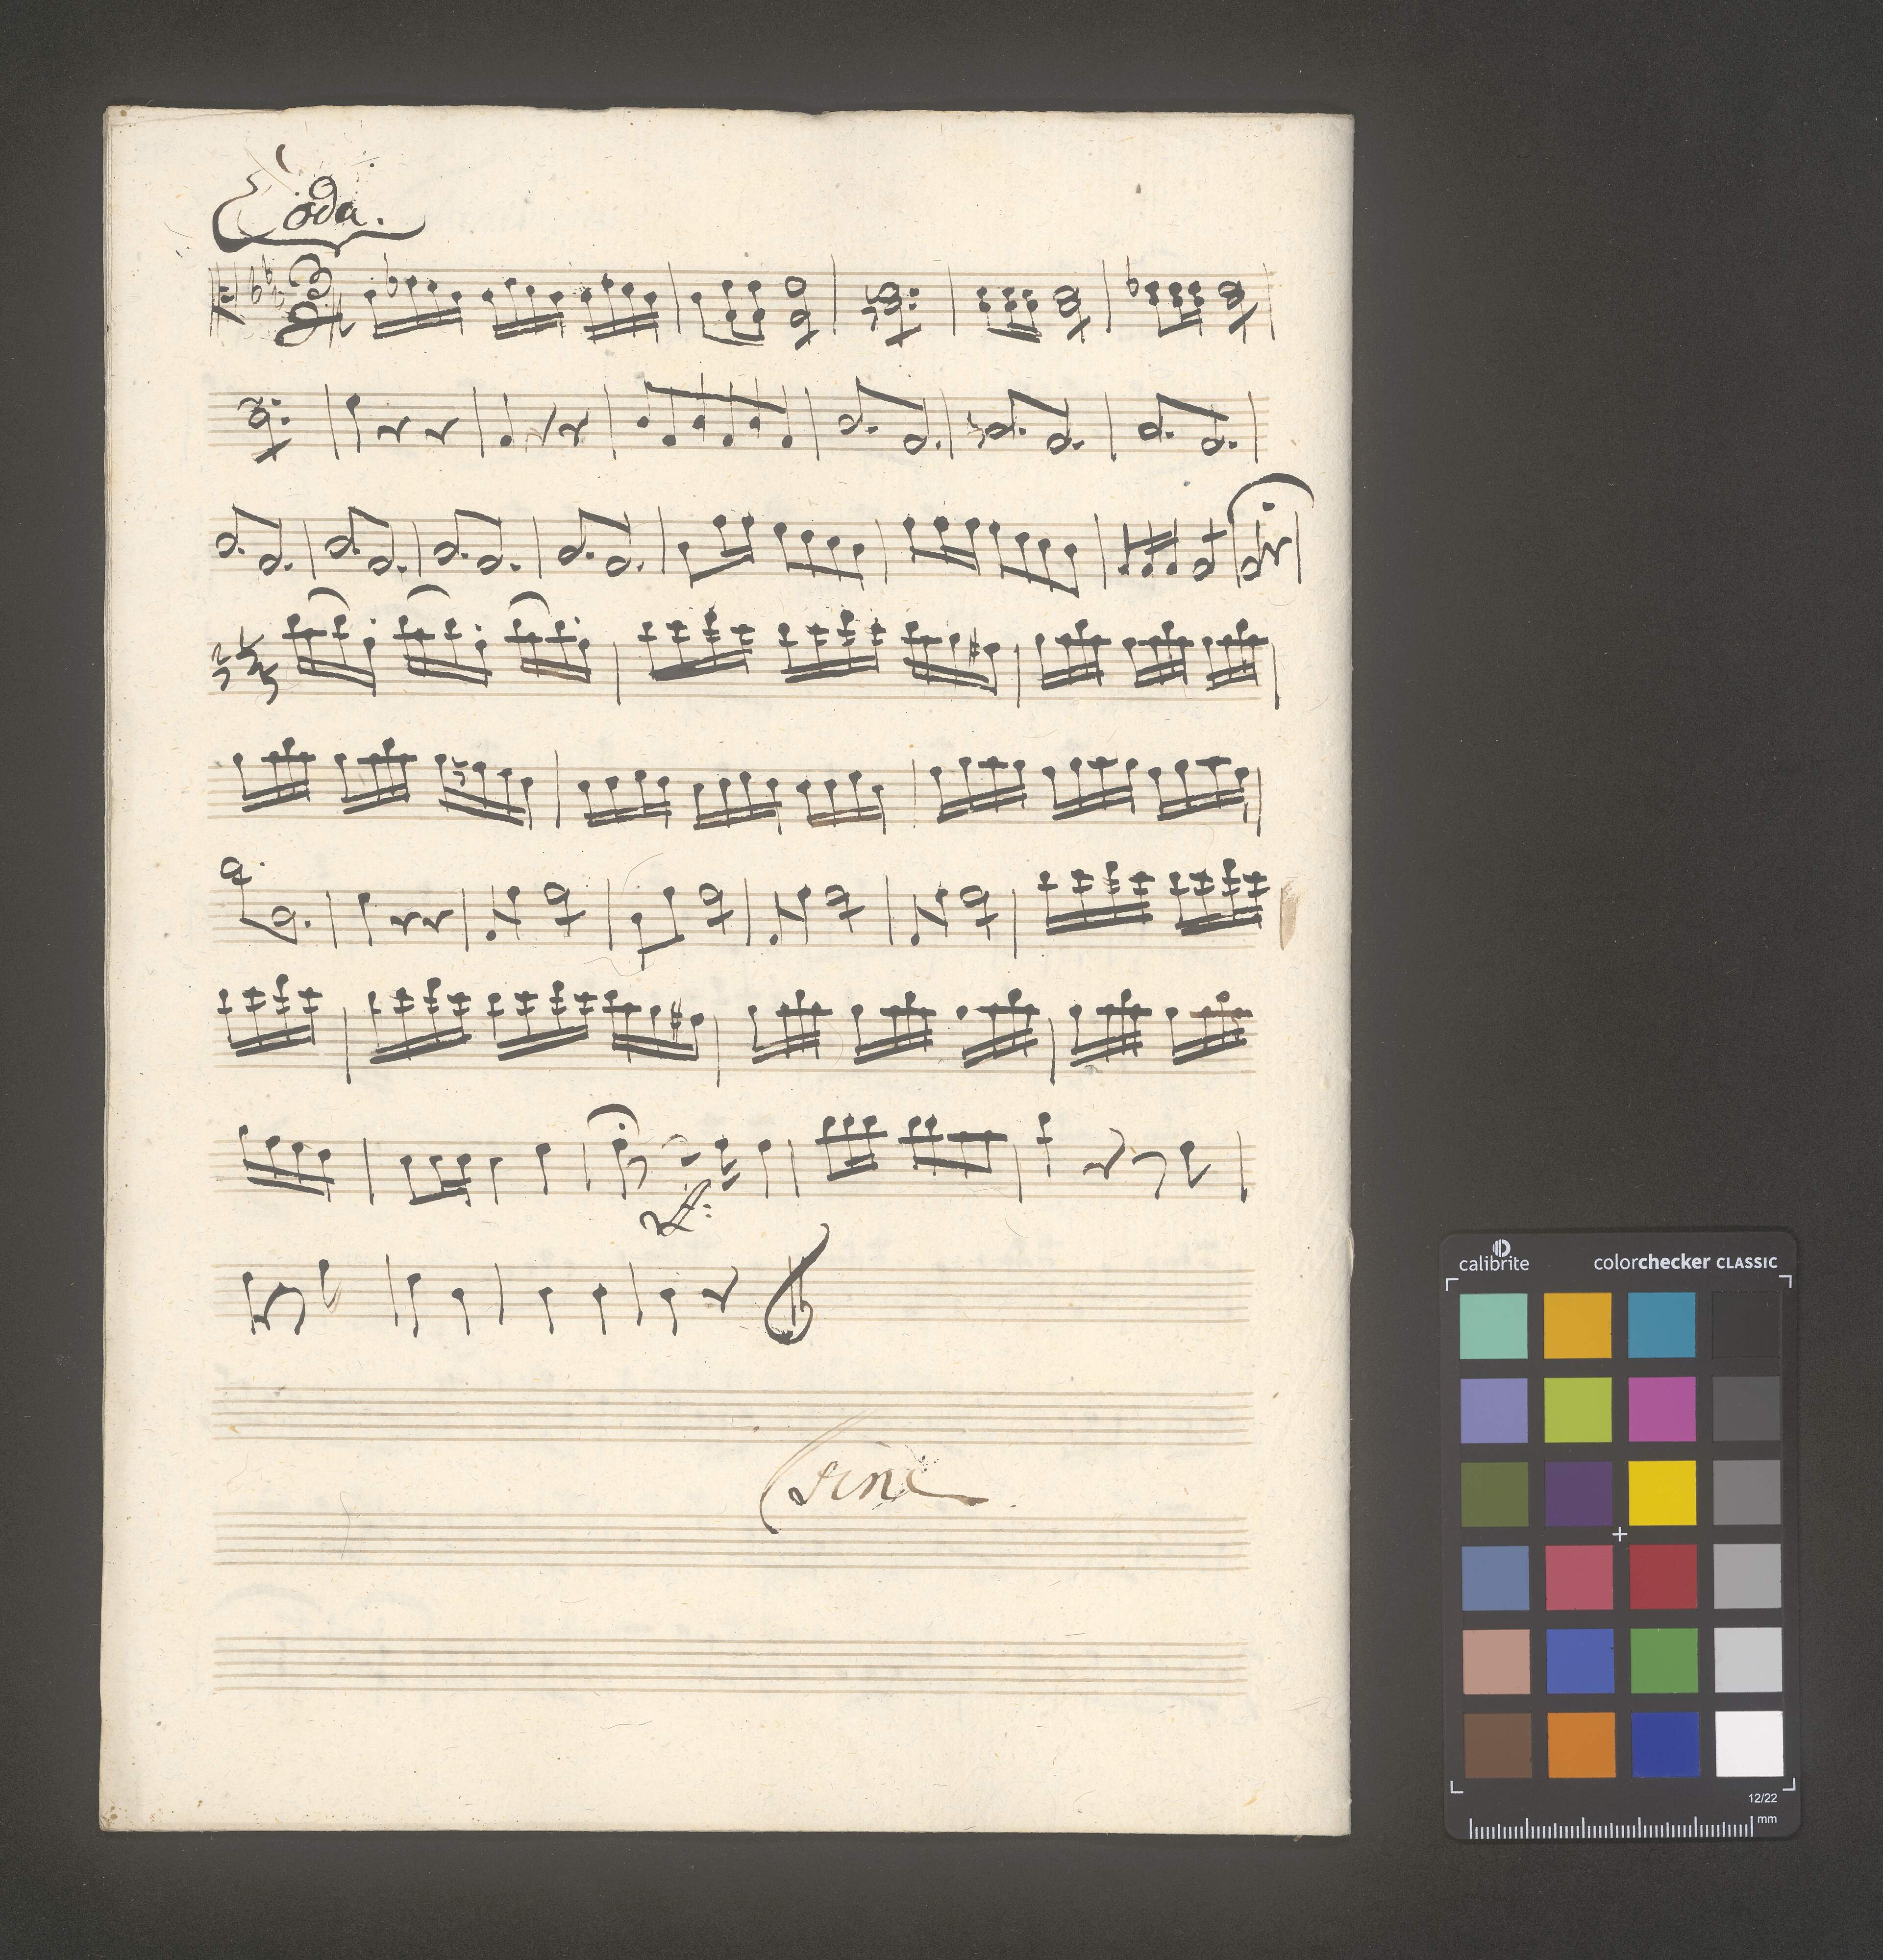 Coda.
ff:
Fine
calibrite colorchecker CLASSIC
12/22
mm